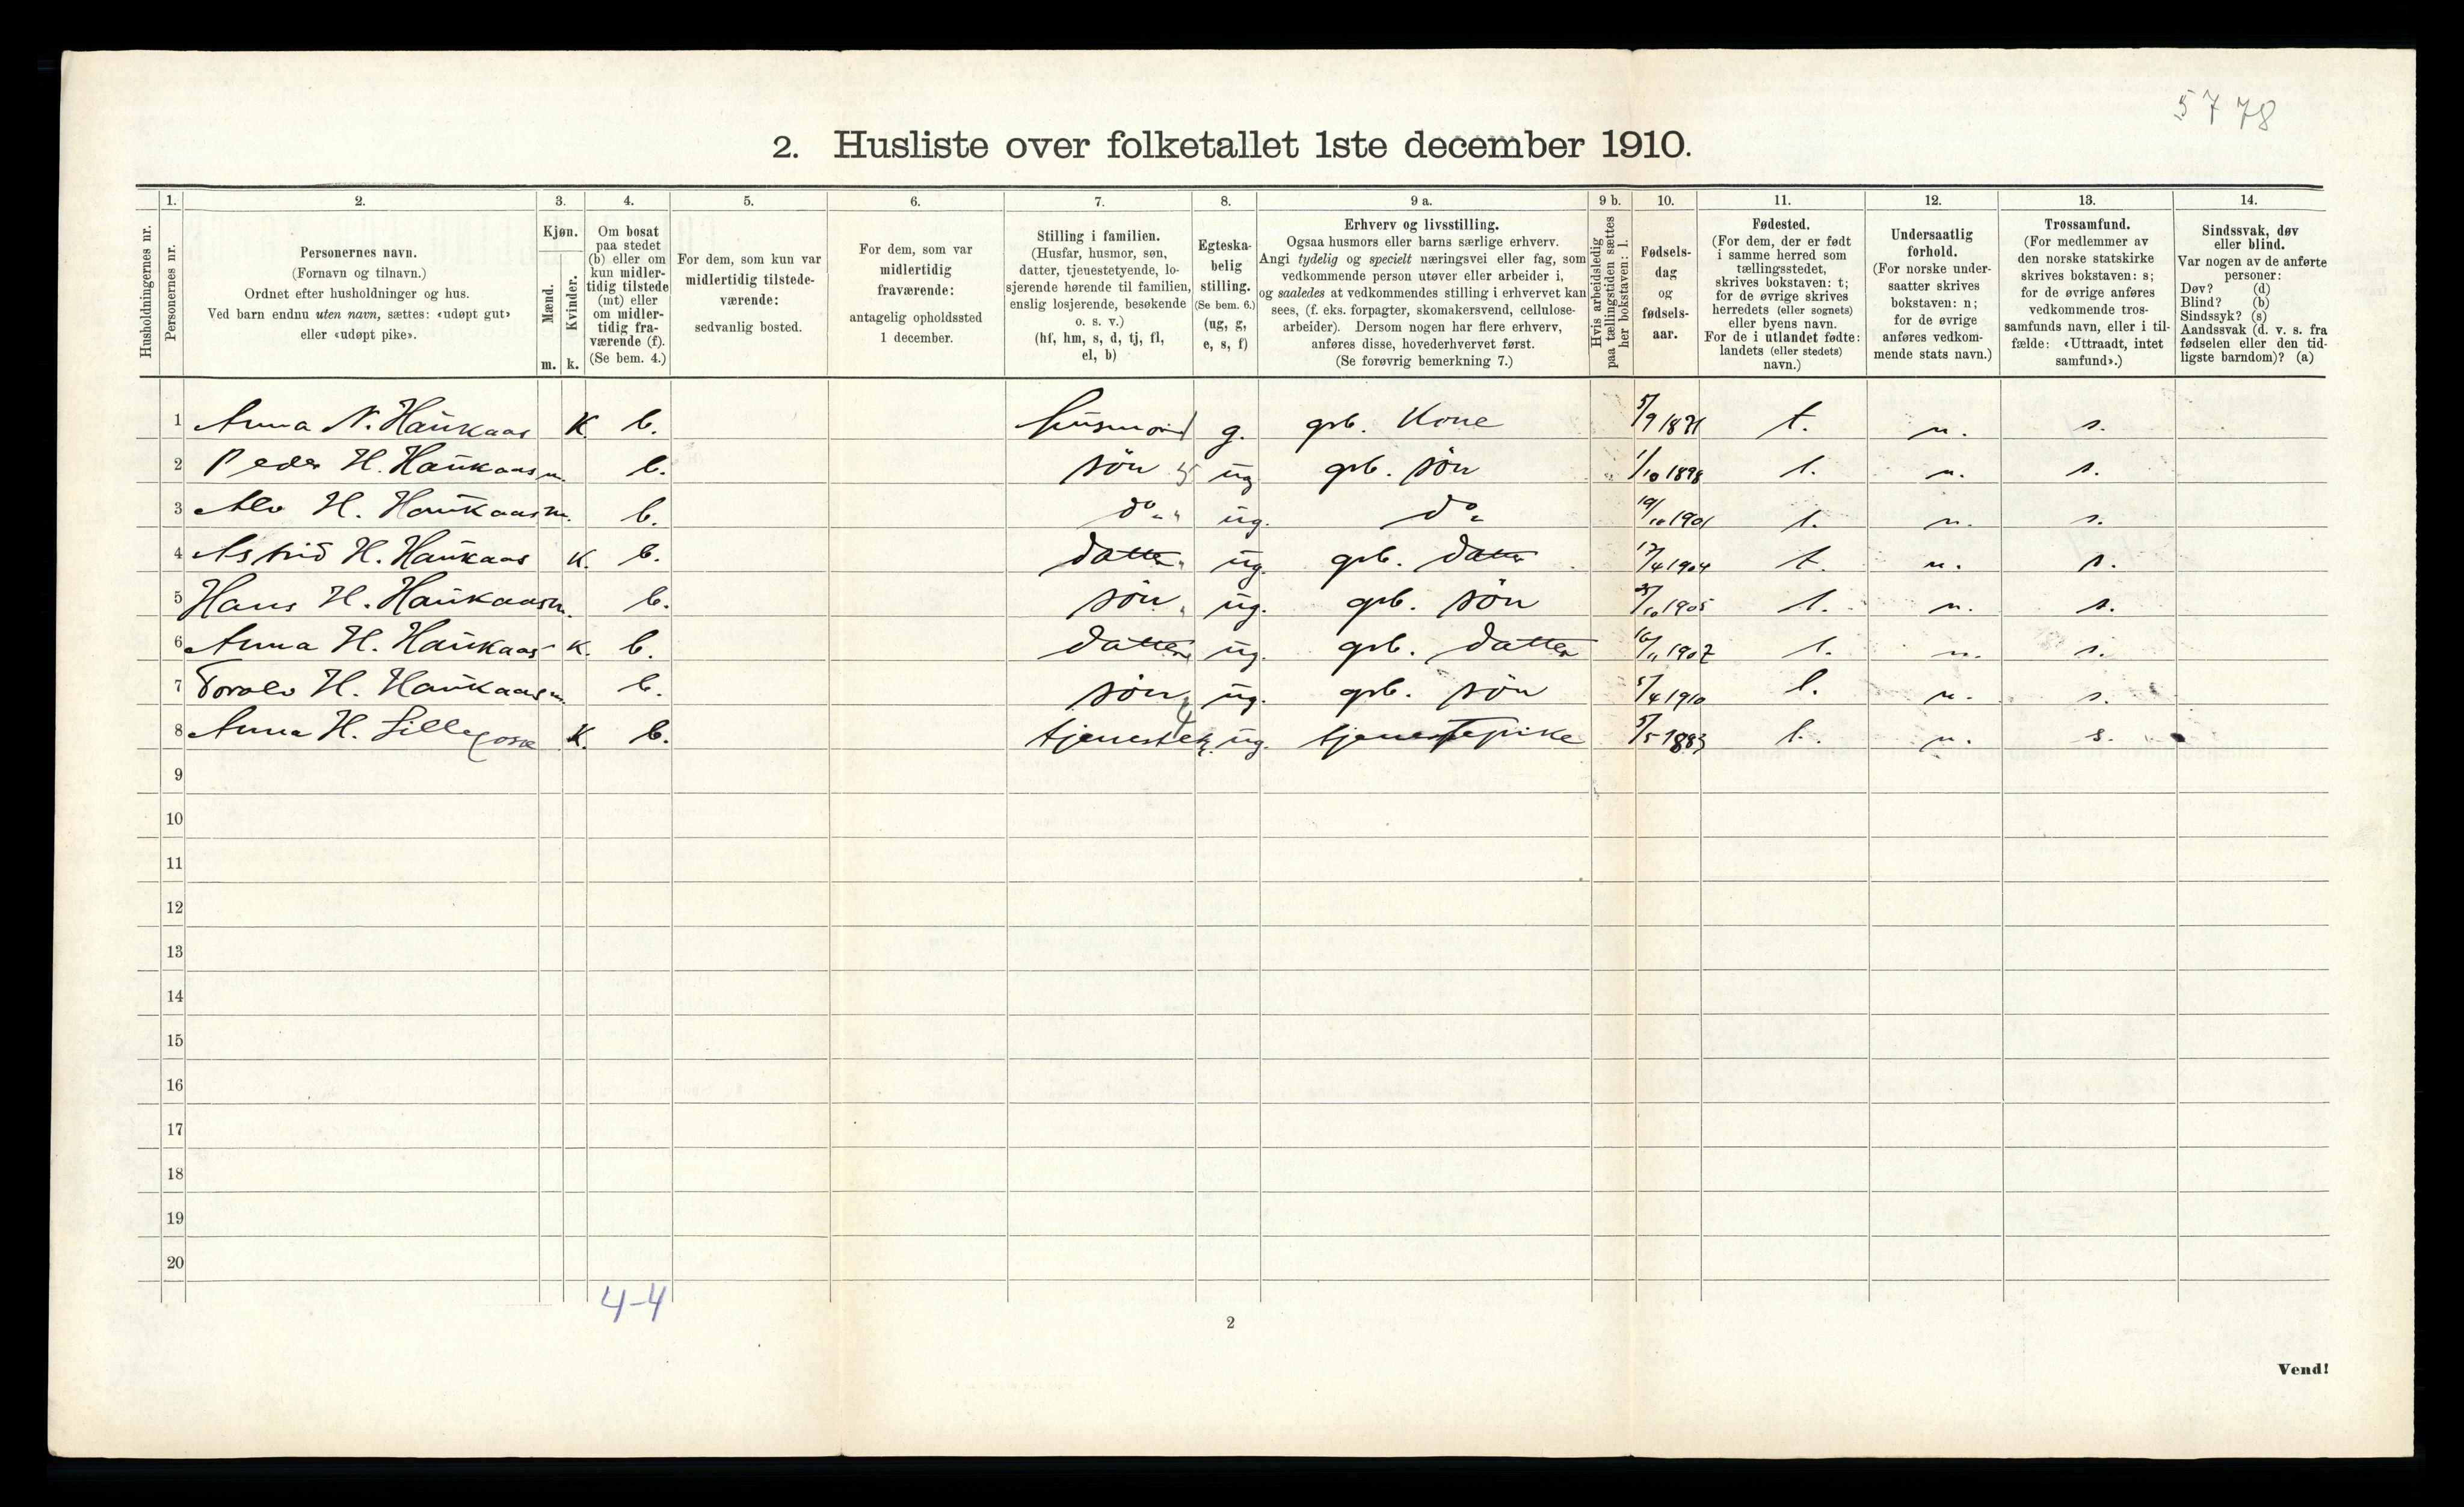 5778
2. Husliste over folketallet 1ste december 1910.
Husholdningernes nr.
1.
Personernes nr.
2.
Personernes navn.
(Fornavn og tilnavn.)
Ordnet efter husholdninger og hus.
Ved barn endnu uten navn, sættes: «udøpt gut»
eller «udøpt pike».
3.
Kjøn.
Mænd.
Kvinder.
m. k.
4.
Om bosat
paa stedet
(b) eller om
kun midler-
tidig tilstede
(mt) eller
om midler-
tidig fra-
værende (f).
(Se bem. 4.)
5.
For dem, som kun var
midlertidig tilstede-
værende:
sedvanlig bosted.
6.
For dem, som var
midlertidig
fraværende:
antagelig opholdssted
1 december.
7.
Stilling i familien.
(Husfar, husmor, søn,
datter, tjenestetyende, lo-
sjerende hørende til familien,
enslig losjerende, besøkende
o. s. v.)
(hf, hm, s, d, tj, fl,
el, b)
8.
Egteska-
belig
stilling.
(Se bem. 6.)
(ug, g,
e, s, f)
9 a.
Erhverv og livsstilling.
Ogsaa husmors eller barns særlige erhverv.
Angi tydelig og specielt næringsvei eller fag, som
vedkommende person utøver eller arbeider i,
og saaledes at vedkommendes stilling i erhvervet kan
sees, (f. eks. forpagter, skomakersvend, cellulose-
arbeider). Dersom nogen har flere erhverv,
anføres disse, hovederhvervet først.
(Se forøvrig bemerkning 7.)
9 b.
Hvis arbeidsledig
paa tællingstiden sættes
her bokstaven: l.
10.
Fødsels-
dag
og
fødsels-
aar.
11.
Fødested.
(For dem, der er født
i samme herred som
tællingsstedet,
skrives bokstaven: t;
for de øvrige skrives
herredets (eller sognets)
eller byens navn.
For de i utlandet fødte:
landets (eller stedets)
navn.)
12.
Undersaatlig
forhold.
(For norske under-
saatter skrives
bokstaven: n;
for de øvrige
anføres vedkom-
mende stats navn.)
13.
Trossamfund.
(For medlemmer av
den norske statskirke
skrives bokstaven: s;
for de øvrige anføres
vedkommende tros-
samfunds navn, eller i til-
fælde: «Uttraadt, intet
samfund».)
14.
Sindssvak, døv
eller blind.
Var nogen av de anførte
personer:
Døv? (d)
Blind? (b)
Sindssyk? (s)
Aandssvak (d. v. s. fra
fødselen eller den tid-
ligste barndom)? (a)
1 Anna N. Haukaas K. b. husmor g. grb. Kone 5/9 1871 t. n. s.
2 Peder H. Haukaas m. b. søn ug grb. søn 1/10 1898 t. n. s.
3 Alv H. Haukaas m. b. do ug. do 19/10 1901 t. n. s.
4 Astrid H. Haukaas K. b. datter ug. grb. datter 17/4 1904 t. n. s.
5 Hans H. Haukaas m. b. søn ug. grb. søn /10 1905 t. n. s.
6 Anna H. Haukaas K. b. datter ug. grb. datter 16/11 1907 t. n. s.
7 Toralv H. Haukaas m. b. søn ug. grb. søn /4 1910 t. n. s.
8 Anna H. K. b. ug. tjenestepike 5/5 1883 t. n. s.
9
10
11
12
13
14
15
16
17
18
19
20
4-4
2
Vend!